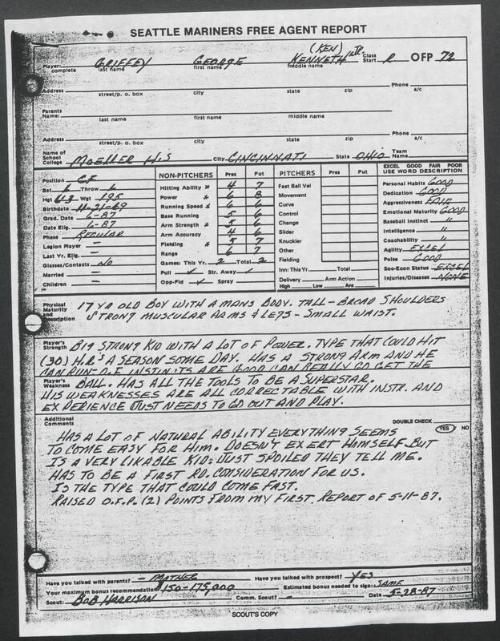 SEATTLE MARINERS FREE AGENT REPORT
Player complete GRIFFEY GEORGE (KEN) KENNETH Class Start R OFP 72
last name first name middle name
Address Phone
street/p. o. box city state zip a/c
Parents Name:
last name first name middle name
Address Phone
street/p. o. box city state zip a/c
Name of School College MOELLER H.S City CINCINNATI State OHIO Team Name
Position CF
Bat L Throw L
Hgt 6-3 Wgt 195
Birthdate 11-21-69
Grad. Date 6-87
Date Elig. 6-87
Phase REGULAR
Legion Player —
Last Yr. Elig. —
Glasses/Contacts NO
Married —
Children —
NON-PITCHERS Pres Fut
Hitting Ability 4 7
Power 6 8
Running Speed 6 6
Base Running 5 6
Arm Strength 5 6
Arm Accuracy 4 6
Fielding 5 7
Range 6 7
Games: This Yr. 2 Total 2
Pull Str. Away
Opp-Fld Spray
PITCHERS Pres Fut
Fast Ball Vel
Movement
Curve
Control
Change
Slider
Knuckler
Other
Fielding
Inn: This Yr. Total
Delivery Arm Action
High Low Are
EXCEL GOOD FAIR POOR
USE WORD DESCRIPTION
Personal Habits GOOD
Dedication GOOD
Aggressiveness FAIR
Emotional Maturity GOOD
Baseball Instinct "
Intelligence "
Coachability "
Agility EXCEL
Poise GOOD
Soc-Econ Status EXCEL
Injuries/Diseases NONE
Physical Maturity and Description 17 YR OLD BOY WITH A MANS BODY. TALL - BROAD SHOULDERS
STRONG MUSCULAR ARMS & LEGS - SMALL WAIST.
Player's Strength BIG STRONG KID WITH A LOT OF POWER. TYPE THAT COULD HIT
(30) H.R'S A SEASON SOME DAY. HAS A STRONG ARM AND HE
CAN RUN. O.F INSTINTS ARE GOOD CAN REALLY GO GET THE
Player's Weakness BALL. HAS ALL THE TOOLS TO BE A SUPERSTAR.
HIS WEAKNESSES ARE ALL CORRECTABLE WITH INSTR. AND
EXPERIENCE JUST NEEDS TO GO OUT AND PLAY.
Additional Comments DOUBLE CHECK YES NO
HAS A LOT OF NATURAL ABILITY EVERYTHING SEEMS
TO COME EASY FOR HIM. DOESN'T EXERT HIMSELF BUT
IS A VERY LIKABLE KID. JUST SPOILED THEY TELL ME.
HAS TO BE A FIRST RD. CONSIDERATION FOR US.
IS THE TYPE THAT COULD COME FAST.
RAISED O.F.P. (2) POINTS FROM MY FIRST REPORT OF 5-11-87.
Have you talked with parents? - MOTHER Have you talked with prospect? YES
Your maximum bonus recommendation 150-175,000 Estimated bonus needed to sign: SAME
Scout: BOB HARRISON Comm. Scout? - Date 5-28-87
SCOUT'S COPY